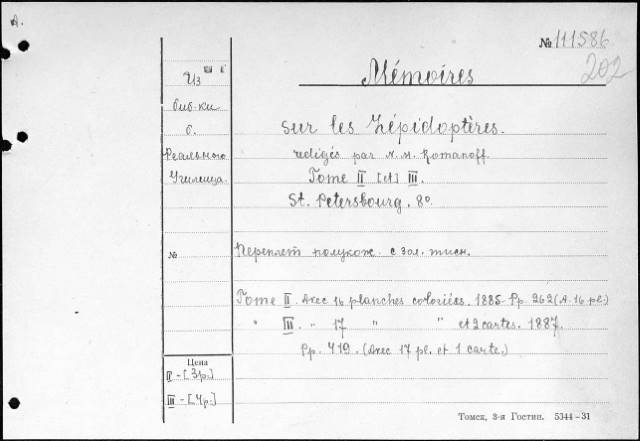 А.
№ 111586
202
Из
Mémoires
биб-ки
б.
Sur les Lépidoptères.
Реального
redigés par N. M. Romanoff
Училища.
Tome II [et] III.
St. Petersbourg. 8º.
№
Переплет полукож. с зол. тисн.
Tome II. Avec 16 planches coloriées. 1885 Pp. 262 (A. 16 pl.)
" III. " 17 " " et 2 cartes. 1887.
Pp. 419. (Avec 17 pl. et 1 carte.)
Цена
II - [3р.]
III - [4р.]
Томск, 3-я Гостип. 5344-31